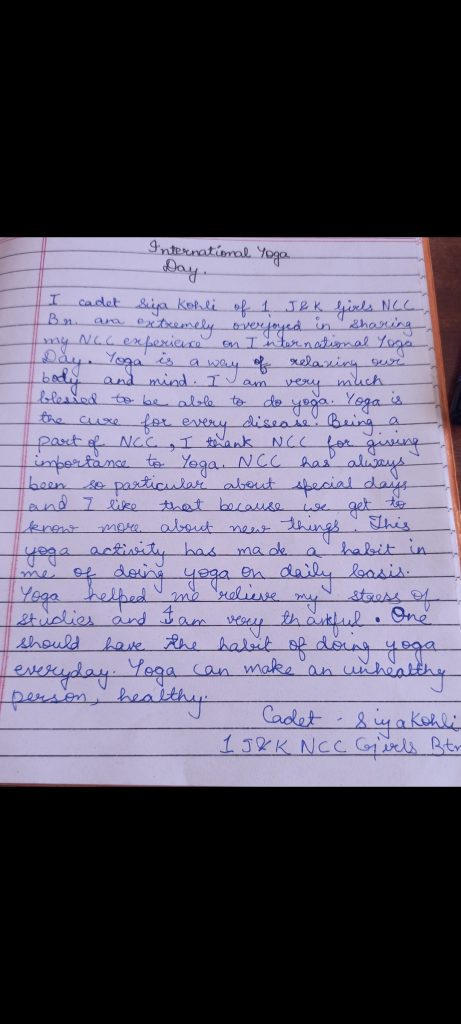 International Yoga
Day.
I cadet Siya Kohli of 1 J&K Girls NCC
Bn. am extremely overjoyed in sharing
my NCC experience on International Yoga
Day. Yoga is a way of relaxing our
body and mind. I am very much
blessed to be able to do yoga. Yoga is
the cure for every disease. Being a
part of NCC, I thank NCC for giving
importance to Yoga. NCC has always
been so particular about special days
and I like that because we get to
know more about new things. This
yoga activity has made a habit in
me of doing yoga on daily basis.
Yoga helped me relieve my stress of
studies and I am very thankful. One
should have the habit of doing yoga
everyday. Yoga can make an unhealthy
person, healthy.
Cadet - Siya Kohli
1 J&K NCC Girls Btn